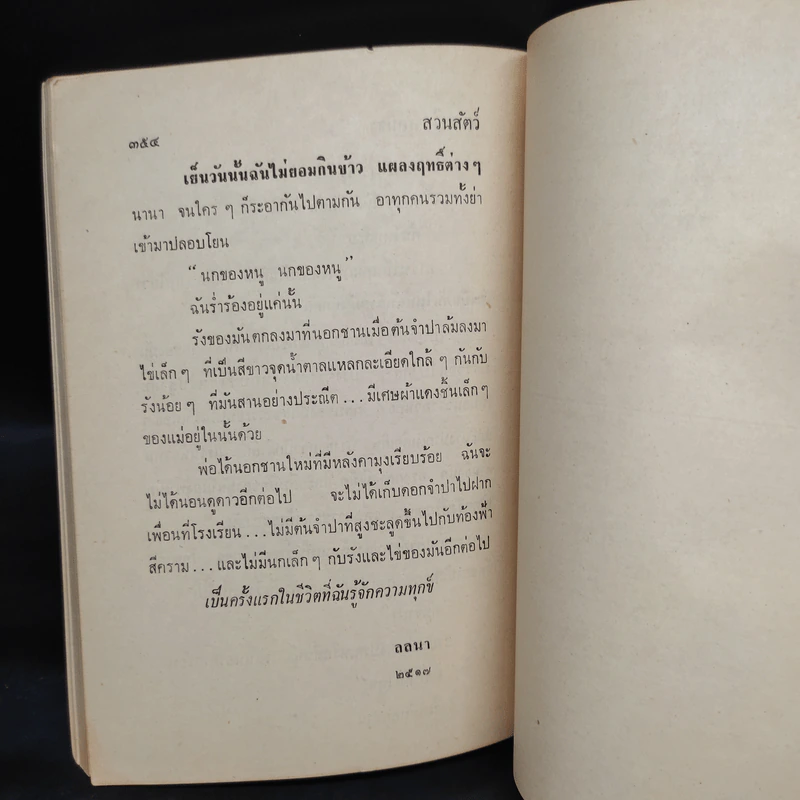 ๓๕๔
สวนสัตว์
เย็นวันนั้นฉันไม่ยอมกินข้าว แผลงฤทธิ์ต่างๆ
นานา จนใคร ๆ ก็ระอากันไปตามกัน อาทุกคนรวมทั้งย่า
เข้ามาปลอบโยน
“นกของหนู นกของหนู”
ฉันร่ำร้องอยู่แค่นั้น
รังของมันตกลงมาที่นอกชานเมื่อต้นจำปาล้มลงมา
ไข่เล็กๆ ที่เป็นสีขาวจุดน้ำตาลแหลกละเอียดใกล้ ๆ กันกับ
รังน้อยๆ ที่มันสานอย่างประณีต...มีเศษผ้าแดงชิ้นเล็กๆ
ของแม่อยู่ในนั้นด้วย
พ่อได้นอกชานใหม่ที่มีหลังคามุงเรียบร้อย ฉันจะ
ไม่ได้นอนดูดาวอีกต่อไป จะไม่ได้เก็บดอกจำปาไปฝาก
เพื่อนที่โรงเรียน...ไม่มีต้นจำปาที่สูงชะลูดขึ้นไปกับท้องฟ้า
สีคราม...และไม่มีนกเล็กๆ กับรังและไข่ของมันอีกต่อไป
เป็นครั้งแรกในชีวิตที่ฉันรู้จักความทุกข์
ลลนา
๒๕๑๗